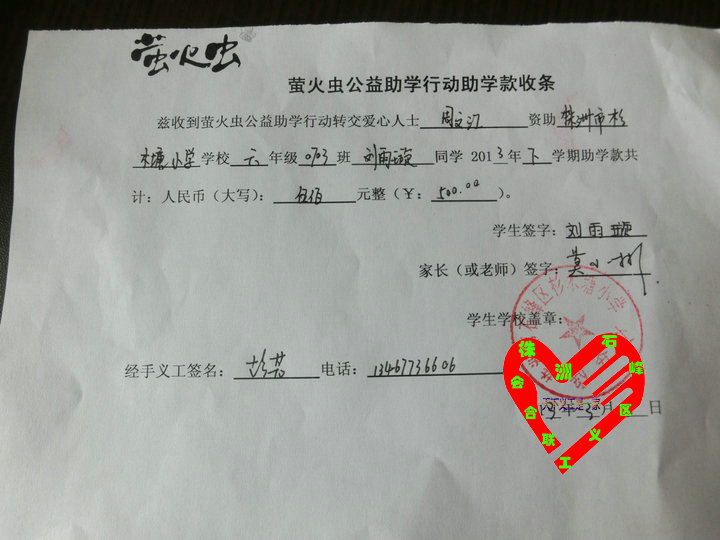 萤火虫
萤火虫公益助学行动助学款收条
兹收到萤火虫公益助学行动转交爱心人士 周文汇 资助 株洲市杉
木塘小学 学校 六 年级 0703 班 刘雨璇 同学 2013年 下 学期助学款共
计：人民币（大写）： 伍佰 元整（￥： 500.00 ）。
学生签字：刘雨璇
家长（或老师）签字：莫小
学生学校盖章：
区杉木塘小学
经手义工签名： 电话： 13467736606
年 月 日
株洲石峰区义工联合会